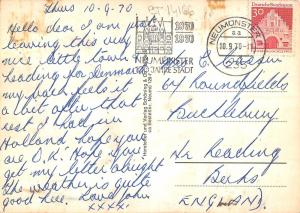 Thurs 10-9-70
Hello dear I am just
leaving this very
nice little town
heading for denmark
my bath feels it
a bit after that
rest I had in
Holland. hope you
are O.K. Hope you
get my letter alright
the weather is quite
good here. Love John
xxxx.
1870
1970
NEUMÜNSTER
100 JAHRE STADT
NEUMÜNSTER
10.9.70
Deutsche Bundespost
30
Bucklebury
Nr Reading
Berks
ENGLAND